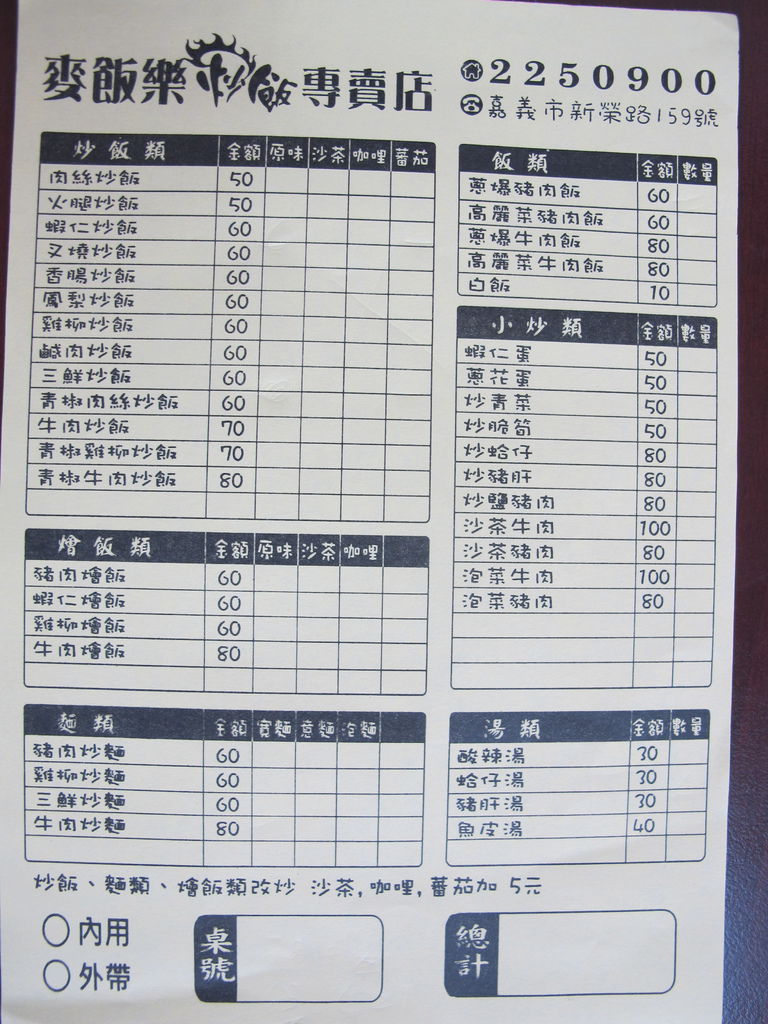 麥飯樂炒飯專賣店
2250900
嘉義市新榮路159號
炒飯類 金額 原味 沙茶 咖哩 蕃茄
肉絲炒飯 50
火腿炒飯 50
蝦仁炒飯 60
叉燒炒飯 60
香腸炒飯 60
鳳梨炒飯 60
雞柳炒飯 60
鹹肉炒飯 60
三鮮炒飯 60
青椒肉絲炒飯 60
牛肉炒飯 70
青椒雞柳炒飯 70
青椒牛肉炒飯 80
燴飯類 金額 原味 沙茶 咖哩
豬肉燴飯 60
蝦仁燴飯 60
雞柳燴飯 60
牛肉燴飯 80
麵類 金額 寬麵 意麵 泡麵
豬肉炒麵 60
雞柳炒麵 60
三鮮炒麵 60
牛肉炒麵 80
飯類 金額 數量
蔥爆豬肉飯 60
高麗菜豬肉飯 60
蔥爆牛肉飯 80
高麗菜牛肉飯 80
白飯 10
小炒類 金額 數量
蝦仁蛋 50
蔥花蛋 50
炒青菜 50
炒脆筍 50
炒蛤仔 80
炒豬肝 80
炒鹽豬肉 80
沙茶牛肉 100
沙茶豬肉 80
泡菜牛肉 100
泡菜豬肉 80
湯類 金額 數量
酸辣湯 30
蛤仔湯 30
豬肝湯 30
魚皮湯 40
炒飯、麵類、燴飯類改炒 沙茶,咖哩,蕃茄加 5元
內用
外帶
桌號
總計